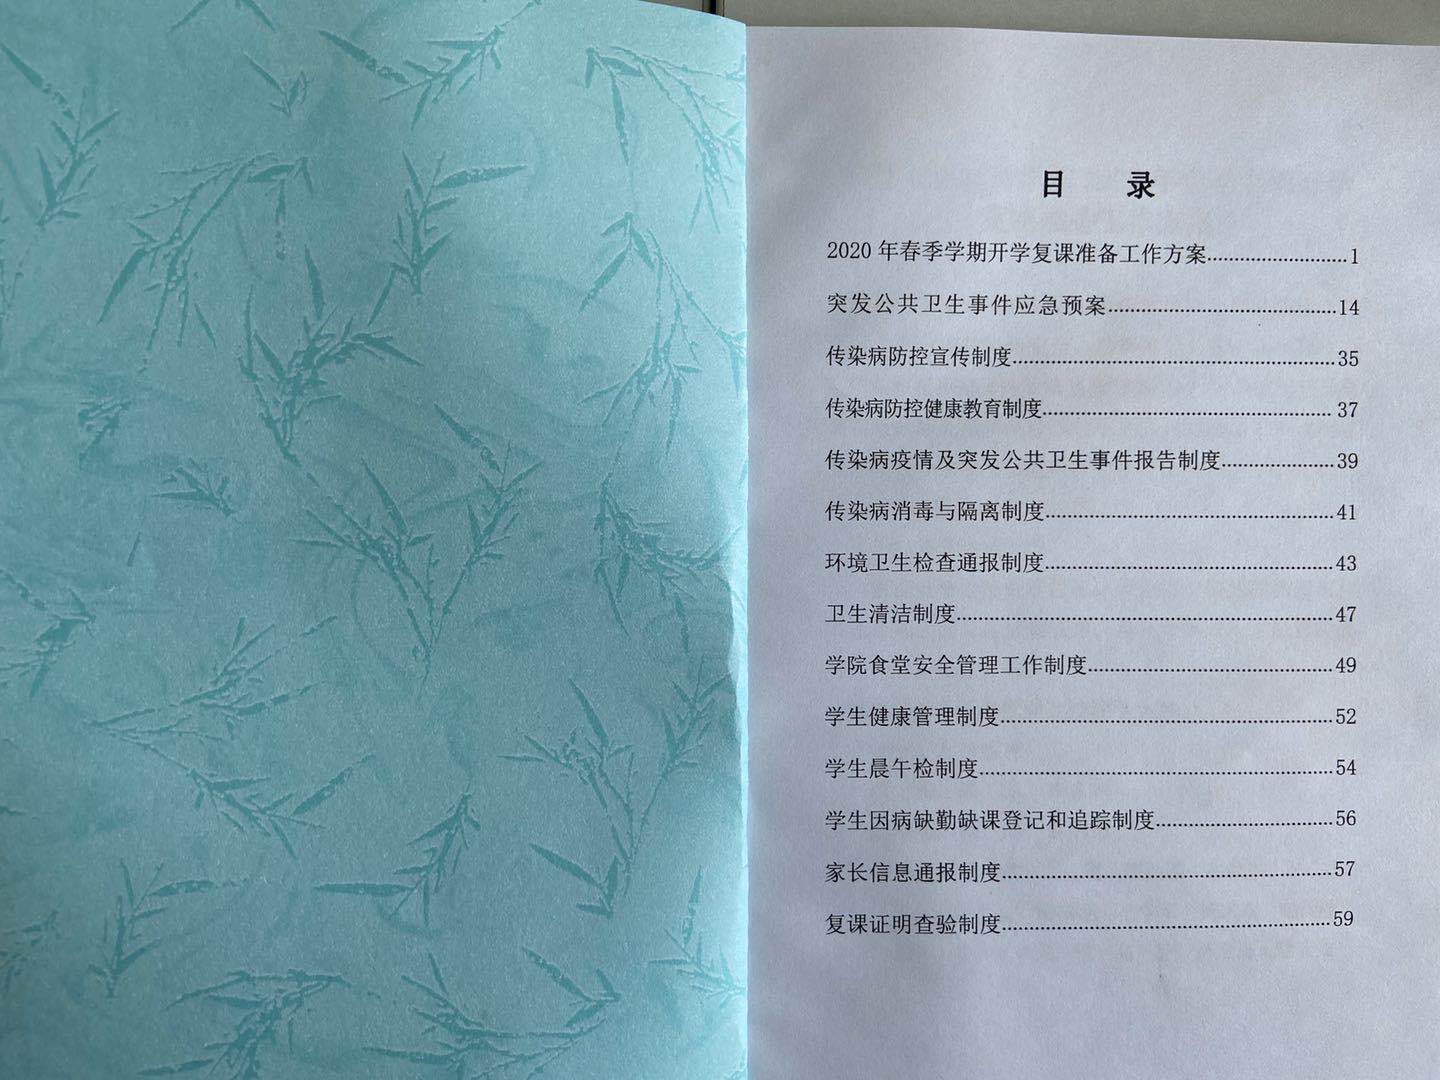 目 录
2020 年春季学期开学复课准备工作方案..........................1
突发公共卫生事件应急预案..........................................14
传染病防控宣传制度..........................................................35
传染病防控健康教育制度.................................................... 37
传染病疫情及突发公共卫生事件报告制度.....................39
传染病消毒与隔离制度.....................................................41
环境卫生检查通报制度.....................................................43
卫生清洁制度.....................................................................47
学院食堂安全管理工作制度.............................................49
学生健康管理制度.............................................................52
学生晨午检制度.................................................................54
学生因病缺勤缺课登记和追踪制度................................56
家长信息通报制度.............................................................57
复课证明查验制度.............................................................59